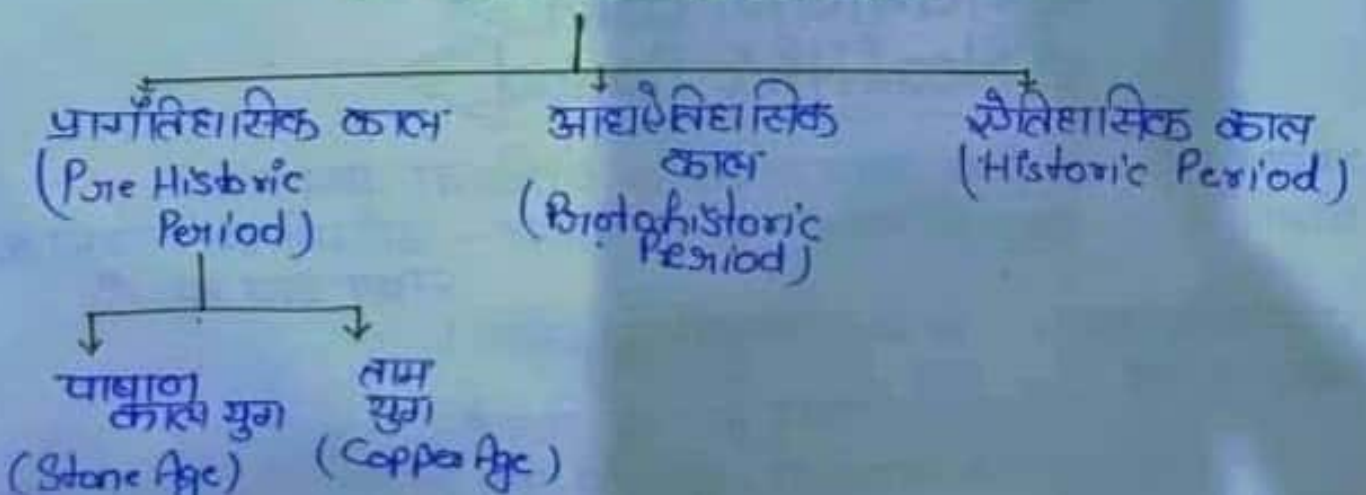 प्रागैतिहासिक काल
(Pre Historic
Period)
आद्यऐतिहासिक
काल
(Protohistoric
Period)
ऐतिहासिक काल
(Historic Period)
पाषाण
काल युग
(Stone Age)
ताम्र
युग
(Copper Age)